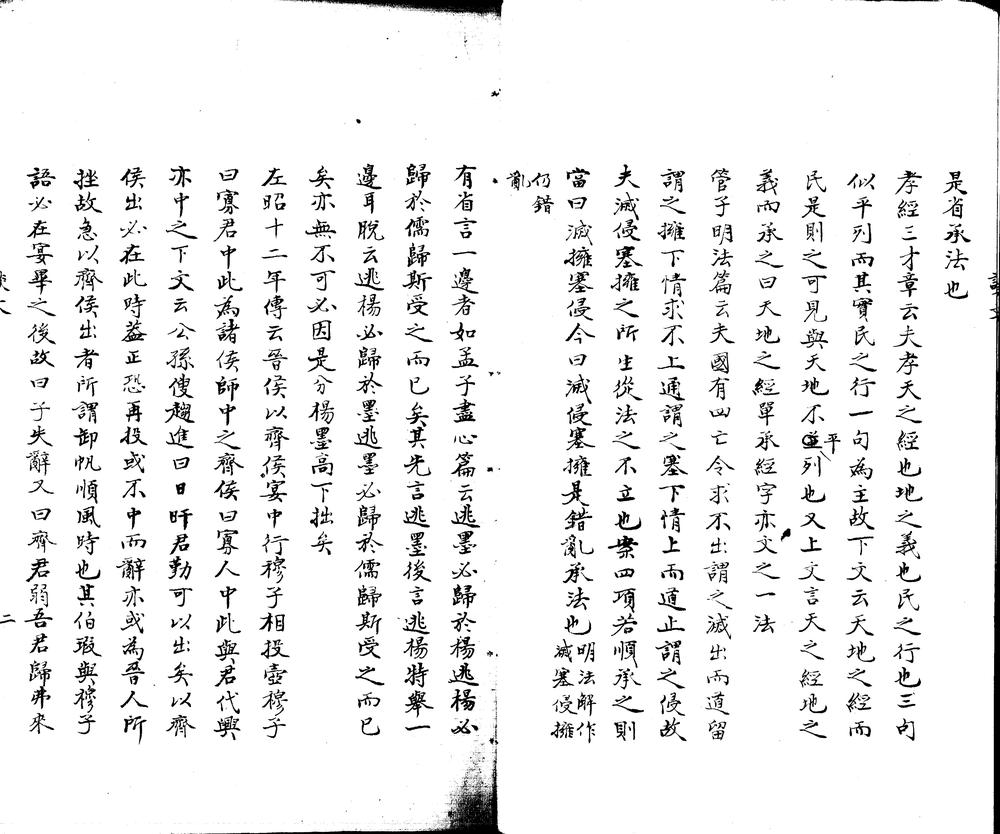 是省承法也
孝經三才章云夫孝天之經也地之義也民之行也三句
似平列而其實民之行一句為主故下文云天地之經而
民是則之可見與天地不平列也又上文言天之經地之
義而承之曰天地之經單承經字亦文之一法
管子明法篇云夫國有四亡令求不出謂之滅出而道留
謂之擁下情求不上通謂之塞下情上而道止謂之侵故
夫滅侵塞擁之所生從法之不立也案四項若順承之則
當曰滅擁塞侵今曰滅侵塞擁是錯亂承法也明法解作
滅塞侵擁
仍錯
亂
有省言一邊者如孟子盡心篇云逃墨必歸於楊逃楊必
歸於儒歸斯受之而已矣其先言逃墨後言逃楊特舉一
邊耳脫云逃楊必歸於墨逃墨必歸於儒歸斯受之而已
矣亦無不可必因是分楊墨高下拙矣
左昭十二年傳云晉侯以齊侯宴中行穆子相投壺穆子
曰寡君中此為諸侯師中之齊侯曰寡人中此與君代興
亦中之下文云公孫傁趨進曰日旰君勤可以出矣以齊
侯出必在此時蓋正恐再投或不中而辭亦或為晉人所
挫故急以齊侯出者所謂卸帆順風時也其伯瑕與穆子
語必在宴畢之後故曰子失辭又曰齊君弱吾君歸弗來
二